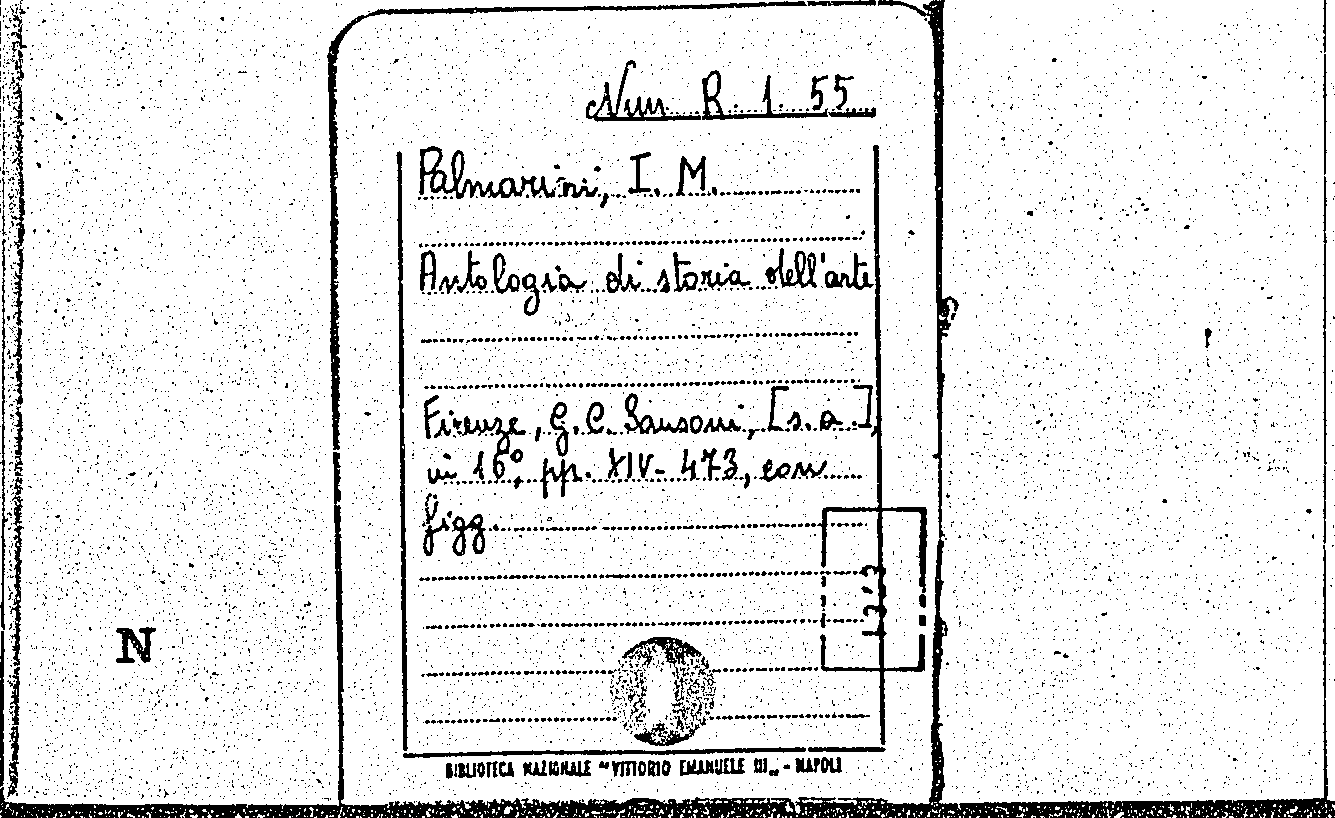 Nun R. 1. 55
Palmarini, I. M.
Antologia di storia dell'arte
Firenze, G. C. Sansoni, [s. a.],
in 16°, pp. XIV-473, con
figg.
N
BIBLIOTECA NAZIONALE "VITTORIO EMANUELE III„ - NAPOLI